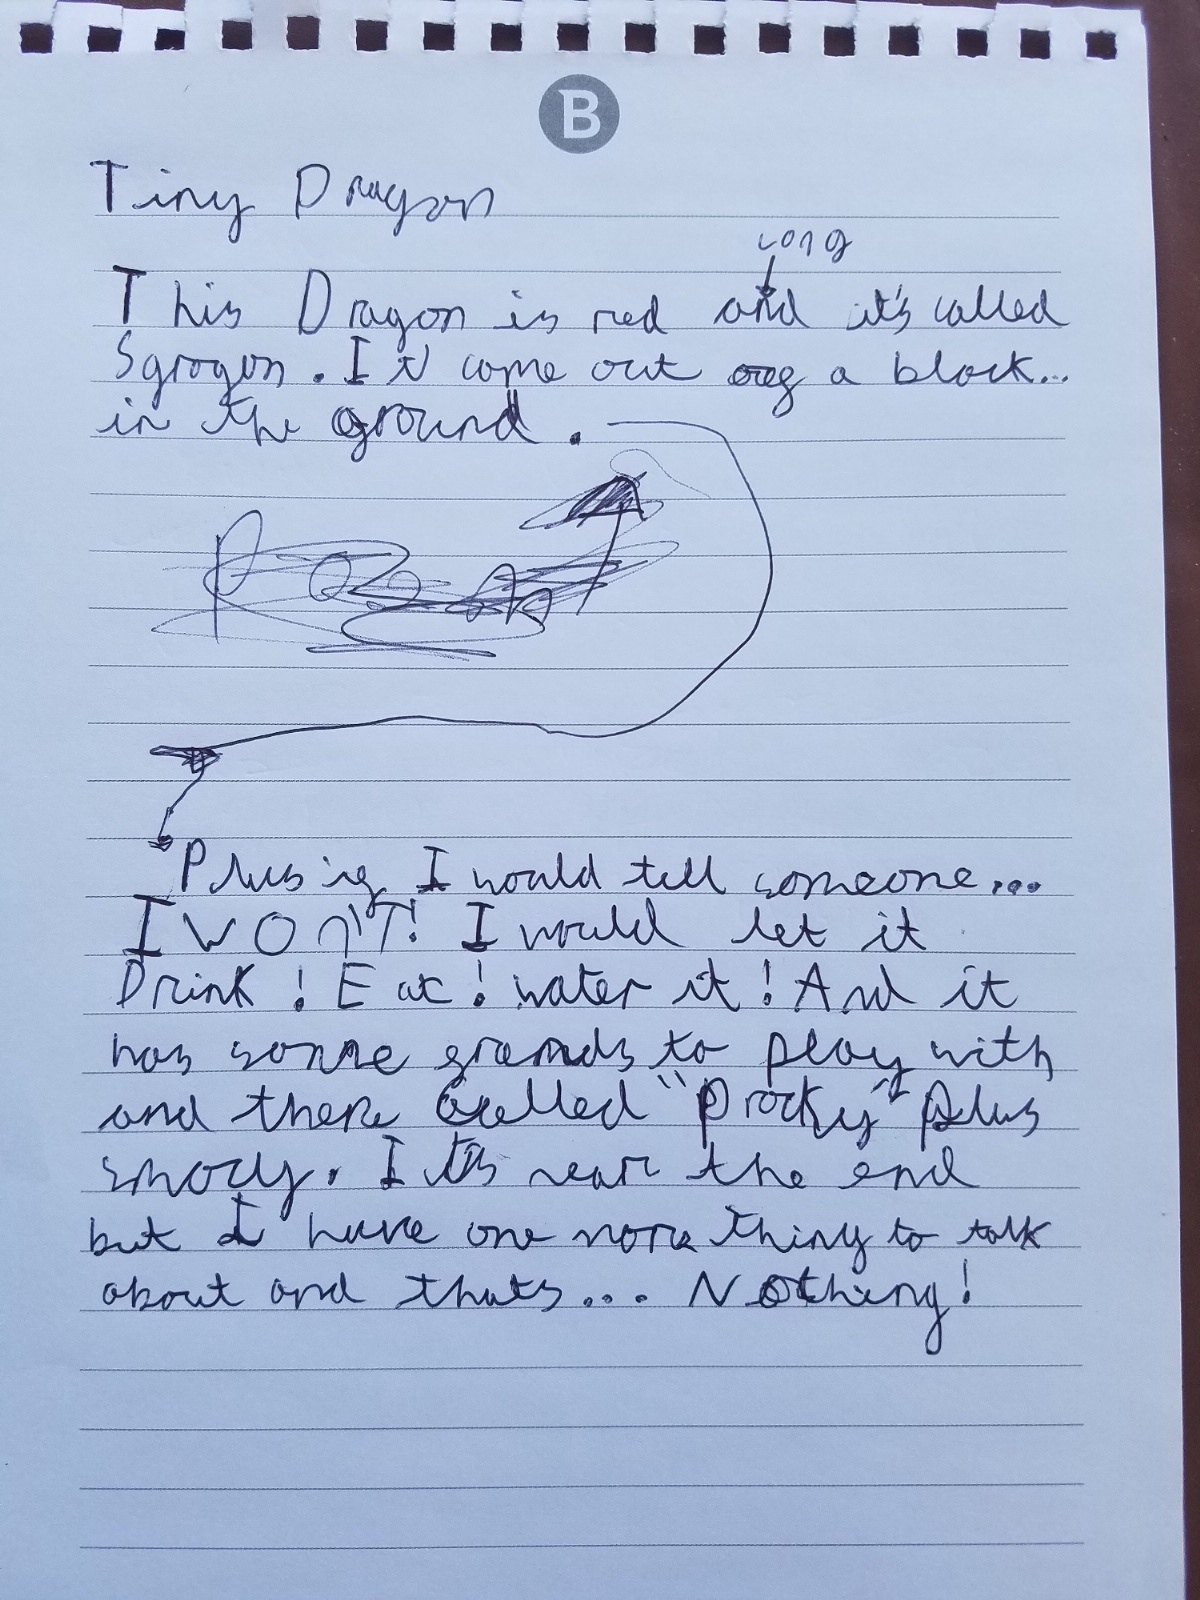 B
Tiny Dragon
long
This Dragon is red and it's called
Sgrogon. It come out a block...
in the ground.
Plus ig I would tell someone...
I WON'T! I would let it
Drink! Eat! water it! And it
has some grands to play with
and there called "Procky" Plus
smocy. It's near the end
but I have one more thing to talk
about and thats... Nothing!